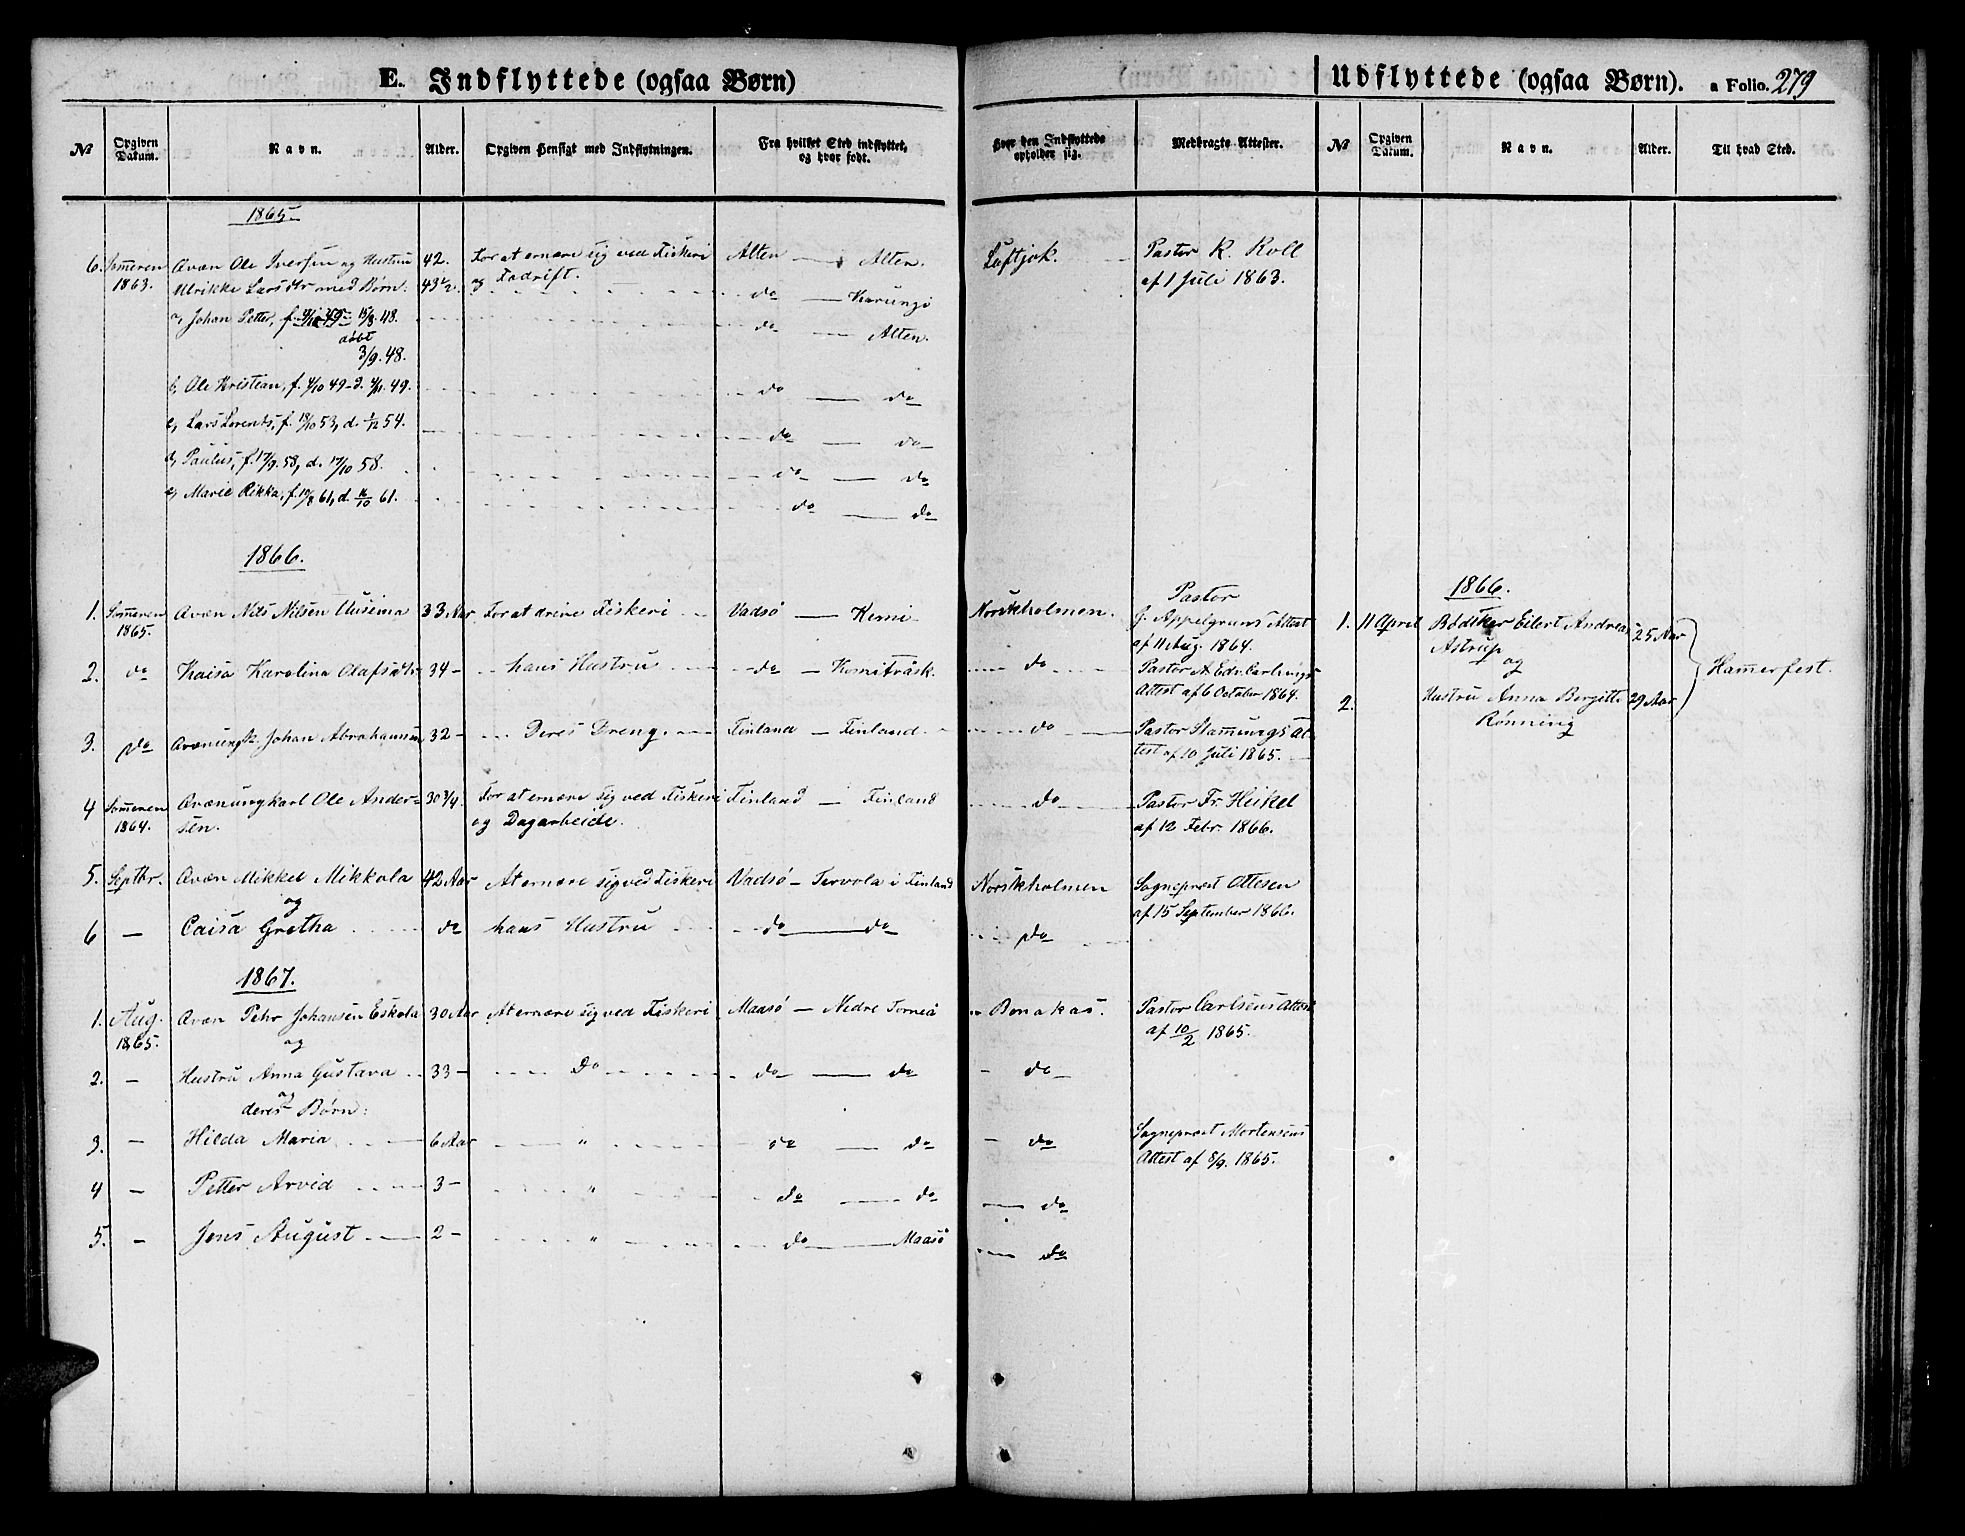 E. Indflyttede (ogsaa Børn)
Udflyttede (ogsaa Børn).
a Folio. 279
No
Opgiven Datum.
Navn.
Alder.
Opgiven Hensigt med Indflytningen.
Fra hvilket Sted indflyttet, og hvor født.
Hvor den Indflyttede opholder sig.
Medbragte Attester.
No
Opgiven Datum.
Navn.
Alder.
Til hvad Sted.
1865
6. Sommeren Qvæn Ole Iversen og Hustru 42. For at ernære sig ved Fiskeri Alten — Alten. Luftjok. Pastor K. Roll
1863. Ulrikke Larsdtr med Børn: 43 1/2. og Fædrift. do — Karungi af 1 Juli 1863.
a, Johan Petter, f. 15/8. 48. do — Alten.
døbt
3/9. 48.
b, Ole Kristian, f. 4/10 49 - d. 4/11. 49. do — do
c, Lars Lorents, f. 18/10 53, d. 1/12 54. do — do
d, Paulus, f. 17/9. 58, d. 17/10 58. do — do
e, Marie Rikka, f. 61, d. 16/10 61. do — do
1866.
1. Sommeren Qvæn Nils Nilsen Uusima 33 Aar For at drive Fiskeri Vadsø — Kemi Norskholmen. Pastor
1865. G. Appelgrens Attest
af 11 Aug. 1864.
2. do Kaisa Karolina Olafsdtr 34 - hans Hustru do — Kemiträsk. do Pastor A. Edv. Carlings
Attest af 6 October 1864.
3. do Qvænungk. Johan Abrahamsen 32 - Deres Dreng. Finland — Finland. do Pastor At-
test af 10 Juli 1865.
4 Sommeren Qvænungkarl Ole Ander- 30 3/4. For at ernære sig ved Fiskeri Finland — Finland do Pastor Fr. Heikel
1864. sen. og Dagarbeide. af 12 Febr. 1866.
5. Septbr. Qvæn Mikkel Mikkola 42 Aar At ernære sig ved Fiskeri Vadsø - Tervola i Finland Norskholmen Sognepræst Ottesen
og af 15 September 1866.
6 — Caisa Gretha do hans Hustru do — do do
1867.
1. Aug. Qvæn Pehr Johansen Eskola 30 Aar At ernære sig ved Fiskeri Maasø — Nedre Torneå Bonakas. Pastor Carlsens Attest
1865. og af 10/2 1865.
2. - Hustru Anna Gustava 33 - Do do — do do
og
deres Børn:
3. - Hilda Maria 6 Aar " do — do do Sognepræst Mortensens
Attest af 8/9. 1865.
4 - Petter Arvid 3 - " do — do do
5. - Jens August 2 - " do — Maasø do
1866.
1. 11 April Bødtker Eilert Andreas 25 Aar
Astrup
og
Hamerfest.
2. Hustru Anna Bergitte 29 Aar
Rønning